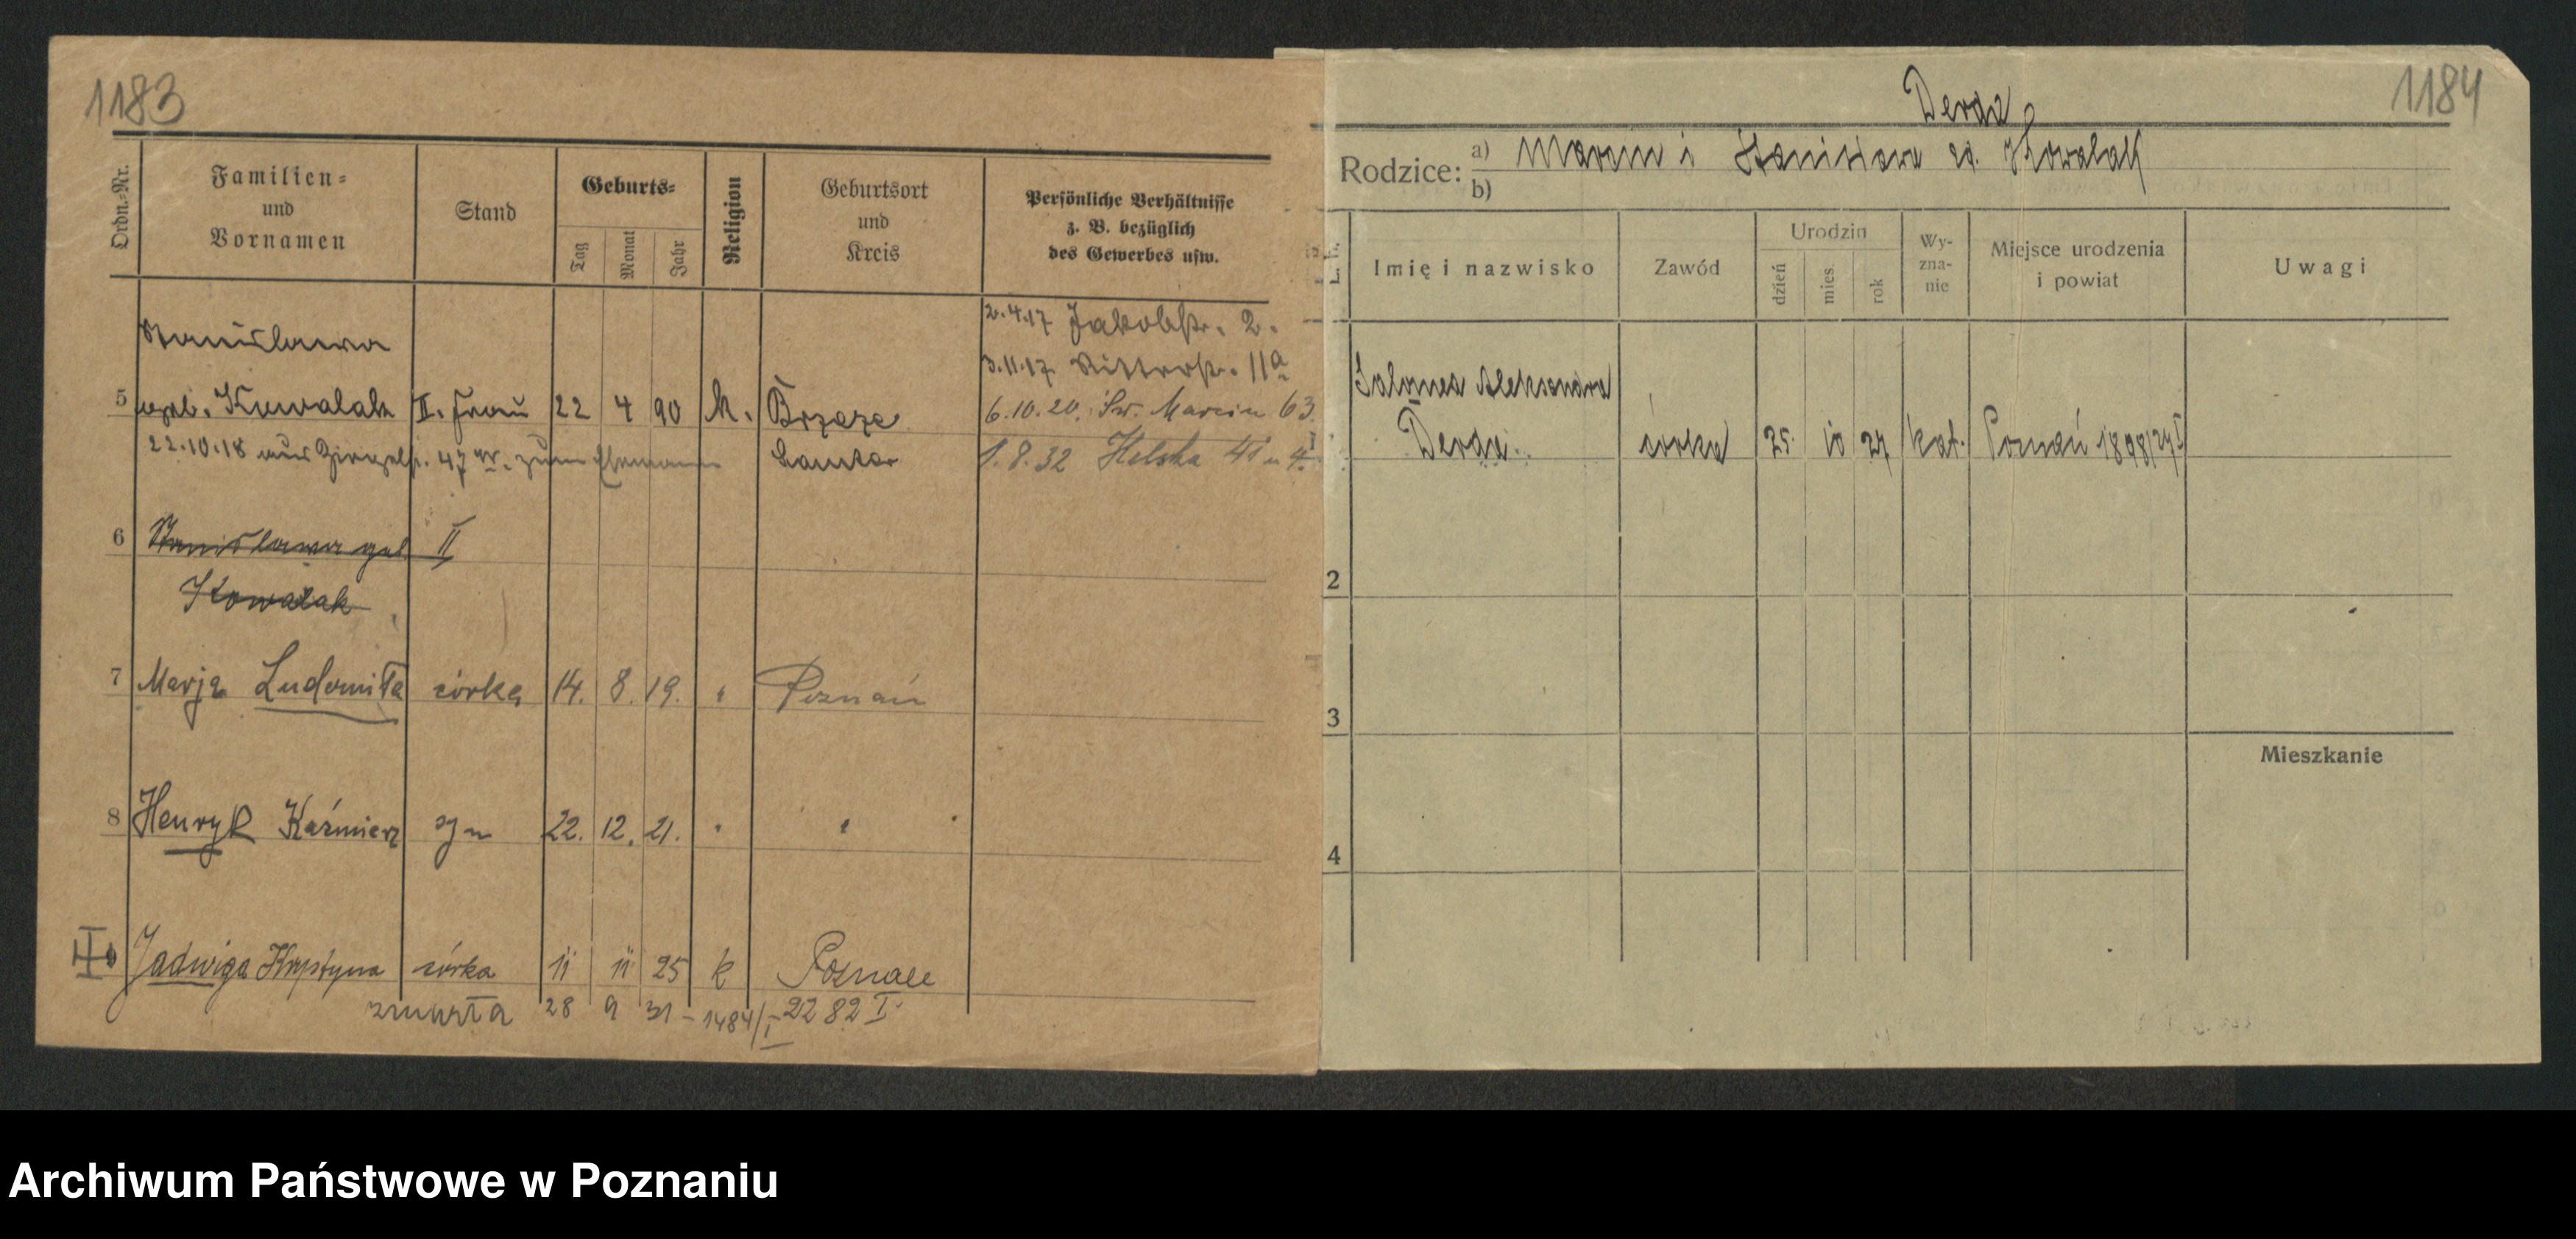 1183
Ordn.-Nr.
Familien=
und
Vornamen
Stand
Geburts=
Tag
Monat
Jahr
Religion
Geburtsort
und
Kreis
Persönliche Verhältnisse
z. B. bezüglich
des Gewerbes usw.
2.4.17 Jakobstr. 2.
Stanislawa
3.11.17 Ritterstr. 11a
5 geb. Kowalak II. Frau 22 4 90 k. Brzoze
6.10.20. Św. Marcin 63.
22.10.18 aus 47 zum Ehemann
Samter
1.8.32 Helska
6 Stanislawa geb II
Kowalak
7 Marja Ludomiła córka 14. 8. 19. " Poznań
8 Henryk Kaźmierz syn 22. 12. 21. " "
Jadwiga Krystyna córka 11 11 25 k Poznań
zmarła 28 9 31 - 1484/I 2282 I
1184
Derda
Rodzice: a) Marcin i Stanisława zd. Kowalak
b)
L. b.
Imię i nazwisko
Zawód
Urodzin
dzień
mies.
rok
Wy-
zna-
nie
Miejsce urodzenia
i powiat
Uwagi
Salomea Aleksandra
Derda córka 25. 10 27 kat. Poznań 1898/27 I
2
3
Mieszkanie
4
Archiwum Państwowe w Poznaniu